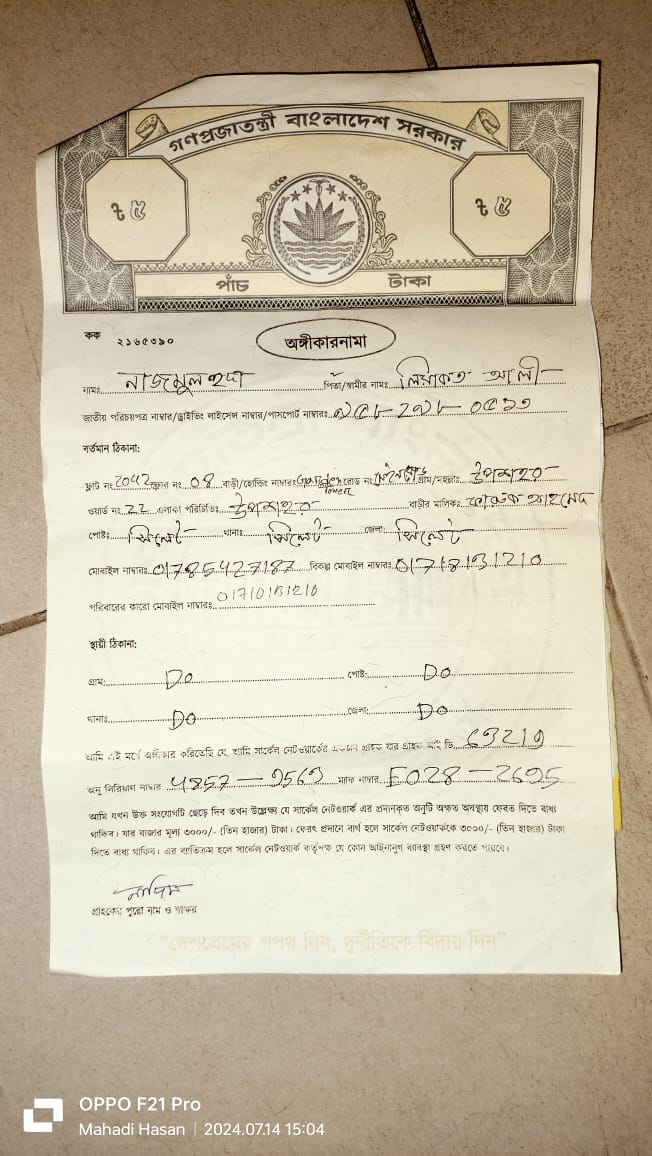 গণপ্রজাতন্ত্রী বাংলাদেশ সরকার
৳ ৫ ৳ ৫
পাঁচ টাকা
কক ২১৬৫৩৯০
অঙ্গীকারনামা
নামঃ নাজমুল হুদা পিতা/স্বামীর নামঃ লিয়াকত আলী
জাতীয় পরিচয়পত্র নাম্বার/ড্রাইভিং লাইসেন্স নাম্বার/পাসপোর্ট নাম্বারঃ
বর্তমান ঠিকানা:
ফ্লাট নং 2042 ফ্লোর নং 08 বাড়ী/হোল্ডিং নাম্বারঃ Garden Tower রোড নং গ্রাম/মহল্লাঃ উপশহর
ওয়ার্ড নং 22 এলাকা পরিচিতিঃ উপশহর বাড়ীর মালিকঃ ফারুক আহমেদ
পোষ্টঃ সিলেট থানাঃ সিলেট জেলাঃ সিলেট
মোবাইল নাম্বারঃ 01785427187 বিকল্প মোবাইল নাম্বারঃ
পরিবারের কারো মোবাইল নাম্বারঃ
স্থায়ী ঠিকানা:
গ্রাম: Do পোষ্ট: Do
থানাঃ Do জেলা: Do
আমি এই মর্মে অঙ্গীকার করিতেছি যে, আমি সার্কেল নেটওয়ার্কের একজন গ্রাহক যার গ্রাহক আই ডি
অনু সিরিয়াল নাম্বার 4857 - 9569 ম্যাক নাম্বার E028 - 2695
আমি যখন উক্ত সংযোগটি ছেড়ে দিব তখন উল্লেক্ষ্য যে সার্কেল নেটওয়ার্ক এর প্রদানকৃত অনুটি অক্ষত অবস্থায় ফেরত দিতে বাধ্য
থাকিব। যার বাজার মূল্য ৩০০০/- (তিন হাজার) টাকা। ফেরৎ প্রদানে ব্যর্থ হলে সার্কেল নেটওয়ার্ককে ৩০০০/- (তিন হাজার) টাকা
দিতে বাধ্য থাকিব। এর ব্যতিক্রম হলে সার্কেল নেটওয়ার্ক কর্তৃপক্ষ যে কোন আইনানুগ ব্যবস্থা গ্রহণ করতে পারবে।
গ্রাহকের পুরো নাম ও স্বাক্ষর
"দেশপ্রেমের শপথ নিন, দুর্নীতিকে বিদায় দিন"
OPPO F21 Pro
Mahadi Hasan | 2024.07.14 15:04